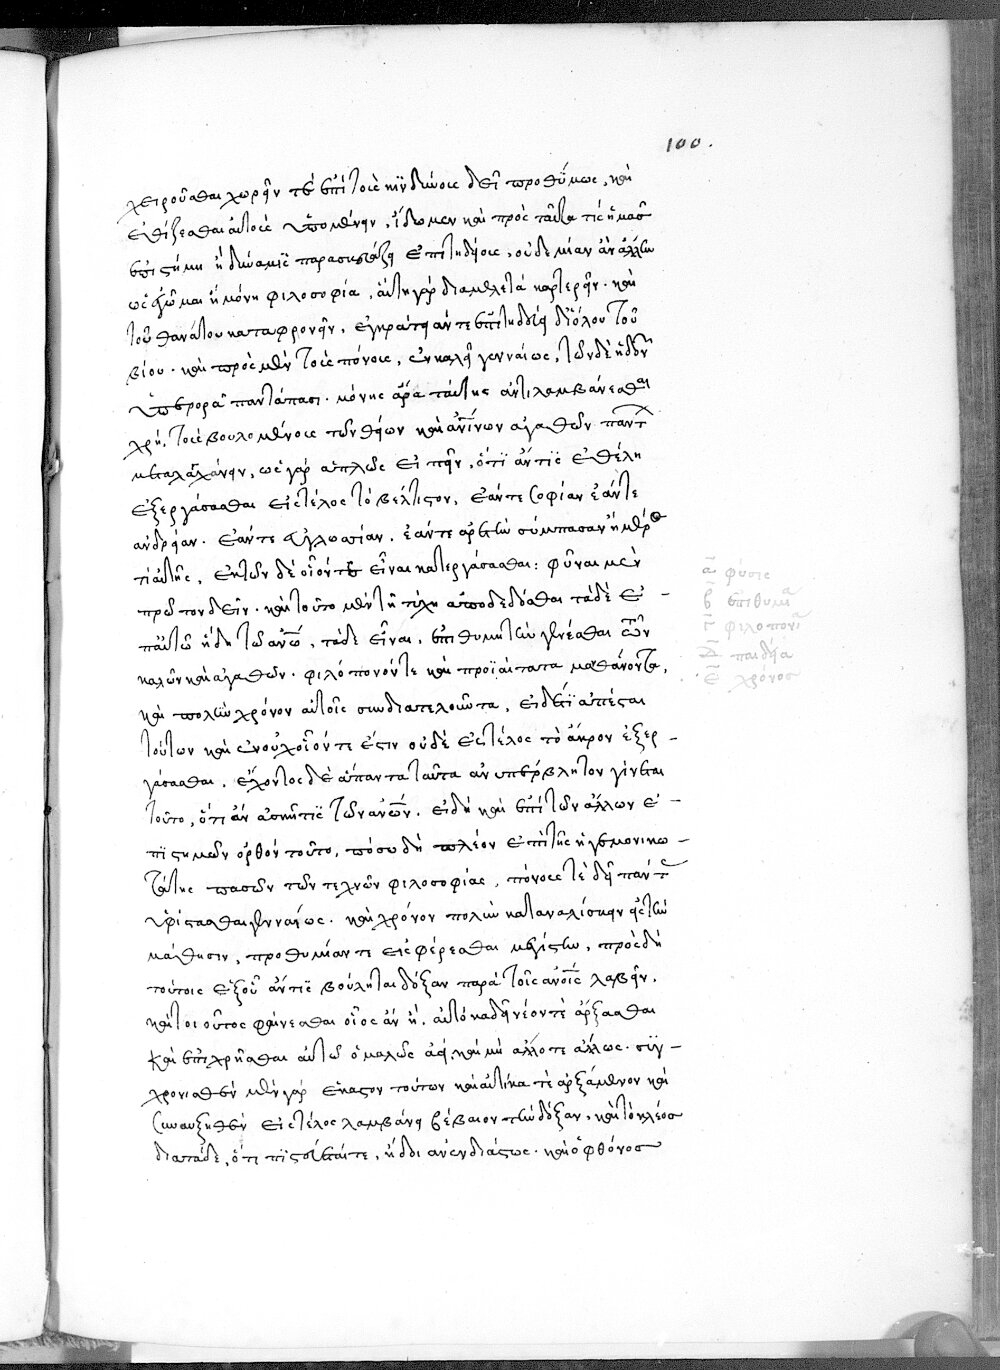 100.
χειροῦσθαι χωρεῖν τε ἐπὶ τοὺς κινδύνους δεῖ προθύμως, καὶ
ἐθίζεσθαι αὐτοὺς ὑπομένειν, ἴδωμεν καὶ πρὸς ταῦτα τίς ἡμᾶς
ἐπιστήμη ἢ δύναμις παρασκευάζει ἐπιτηδείους, οὐδεμίαν ἂν ἄλλην
ὡς ἐγᾦμαι ἢ μόνη φιλοσοφία, αὐτὴ γὰρ διαμελετᾷ καρτερεῖν. καὶ
τοῦ θανάτου καταφρονεῖν, ἐγκράτειάν τε ἐπιτηδεύει δι' ὅλου τοῦ
βίου. καὶ πρὸς μὲν τοὺς πόνους, ἐγκαλεῖ γενναίως, τῶν δὲ ἡδονῶν
ὑπερορᾷ παντάπασι. μόνης ἄρα ταύτης ἀντιλαμβάνεσθαι
χρή, τοὺς βουλομένους τῶν θείων καὶ ἀνίνων ἀγαθῶν πάντ
μεταλαγχάνειν, ὡς γὰρ ἁπλῶς εἰπεῖν, ὅτι ἄν τις ἐθέλῃ
ἐξεργάσασθαι εἰς τέλος τὸ βέλτιστον, ἐάν τε σοφίαν ἐάν τε
ἀνδρείαν. ἐάν τε εὐγλωττίαν, ἐάν τε ἀρετὴν σύμπασαν ἢ μέρος
τι αὐτῆς, ἐκ τῶνδε οἷόν τε εἶναι κατεργάσασθαι: φῦναι μὲν
πρῶτον δεῖν. καὶ τοῦτο μὲν τῇ τύχῃ ἀποδεδόσθαι τὰ δὲ ἐ-
π' αὐτῷ ἤδη τῷ ἀνῷ, τάδε εἶναι, ἐπιθυμητὴν γενέσθαι τῶν
καλῶν καὶ ἀγαθῶν. φιλόπονόν τε καὶ πρωϊαίτατα μανθάνοντα,
καὶ πολὺν χρόνον αὐτοῖς συνδιατελοῦντα, εἰ δέ τι ἀπέσται
τούτων καὶ ἓν οὐχ οἷόν τέ ἐστιν οὐδὲ ἐς τέλος τὸ ἄκρον ἐξερ-
γάσασθαι, ἔχοντος δὲ ἅπαντα ταῦτα ἀνυπέρβλητον γίνεται
τοῦτο, ὅτι ἂν ἀσκῇ τις τῶν ἀνῶν. εἰ δὴ καὶ ἐπὶ τῶν ἄλλων ἐ-
πιστημῶν ὀρθὸν τοῦτο, πόσῳ δὴ πλέον ἐπὶ τῆς ἡγεμονικω-
τάτης πασῶν τῶν τεχνῶν φιλοσοφίας, πόνους τε δεῖ πάντ
ὑφίστασθαι γενναίως. καὶ χρόνον πολὺν καταναλίσκειν εἰς τὴν
μάθησιν, προθυμίαν τε εἰσφέρεσθαι μεγίστην, πρὸς δὴ
τούτοις ἐξ οὗ ἄν τις βούληται δόξαν παρὰ τοῖς ἀνοις λαβεῖν,
καὶ τοιοῦτος φαίνεσθαι οἷος ἂν ᾖ, αὐτίκα δεῖ νέον τε ἄρξασθαι
καὶ ἐπιχρῆσθαι αὐτῷ ὁμαλῶς ἀεί, καὶ μὴ ἄλλοτε ἄλλως. συγ-
χρονισθὲν μὲν γὰρ ἕκαστον τούτων καὶ αὐτίκα τε ἀρξάμενον καὶ
συναυξηθὲν εἰς τέλος λαμβάνει βέβαιον τὴν δόξαν, καὶ τὸ κλέος
διὰ τάδε, ὅτι πιστεύεταί τε, ἤδη ἀνενδιάστως. καὶ ὁ φθόνος
α φυσις
β επιθυμία
γ φιλοπονία
δ παιδεία
ε χρόνος